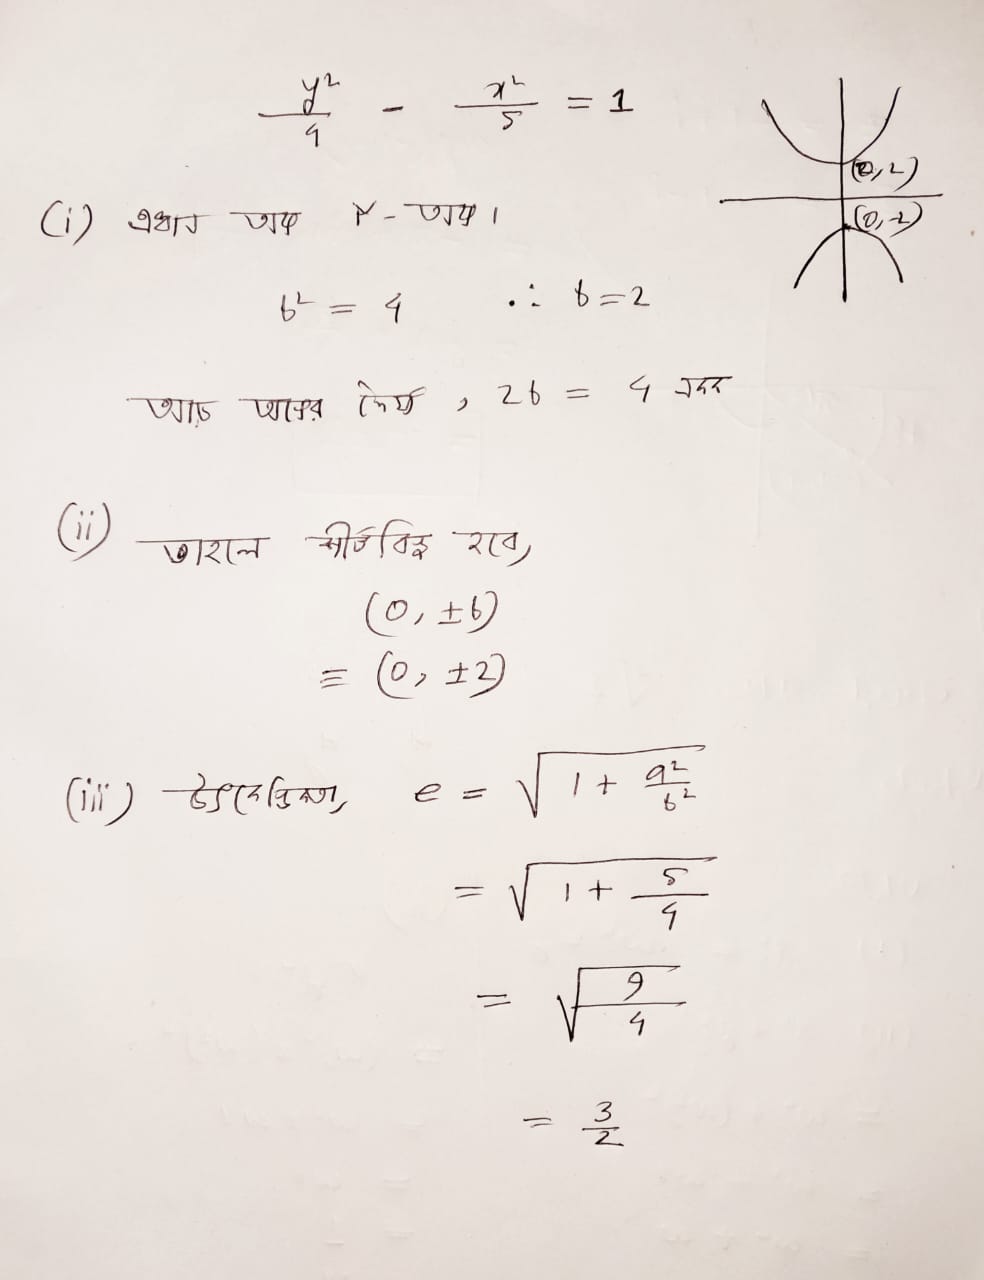 y²/4 - x²/5 = 1
(0,2)
(0,-2)
(i) প্রধান অক্ষ y-অক্ষ।
b² = 4 ∴ b=2
আড় অক্ষের দৈর্ঘ্য, 2b = 4 একক
(ii) তাহলে শীর্ষবিন্দু হবে,
(0, ±b)
≡ (0, ±2)
(iii) উৎকেন্দ্রিকতা, e = √(1 + a²/b²)
= √(1 + 5/4)
= √(9/4)
= 3/2